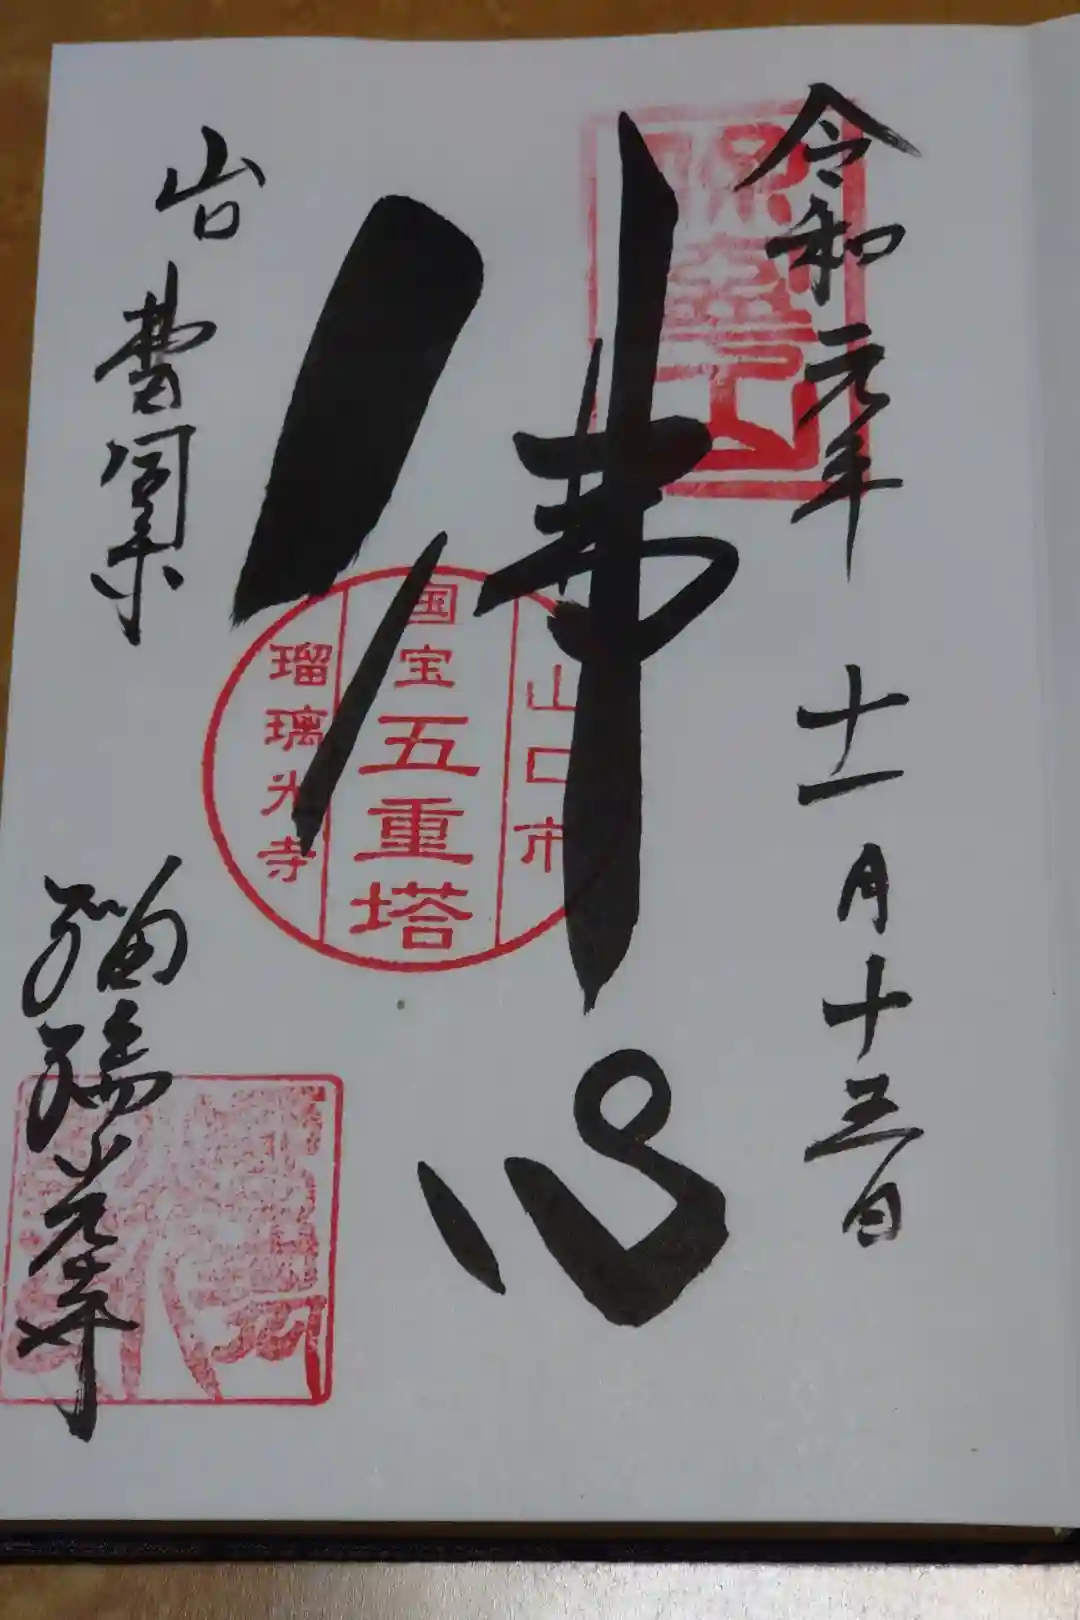 令和元年 十一月十三日
保寧山
佛心
山口市
国宝五重塔
瑠璃光寺
山口
瑠璃光寺